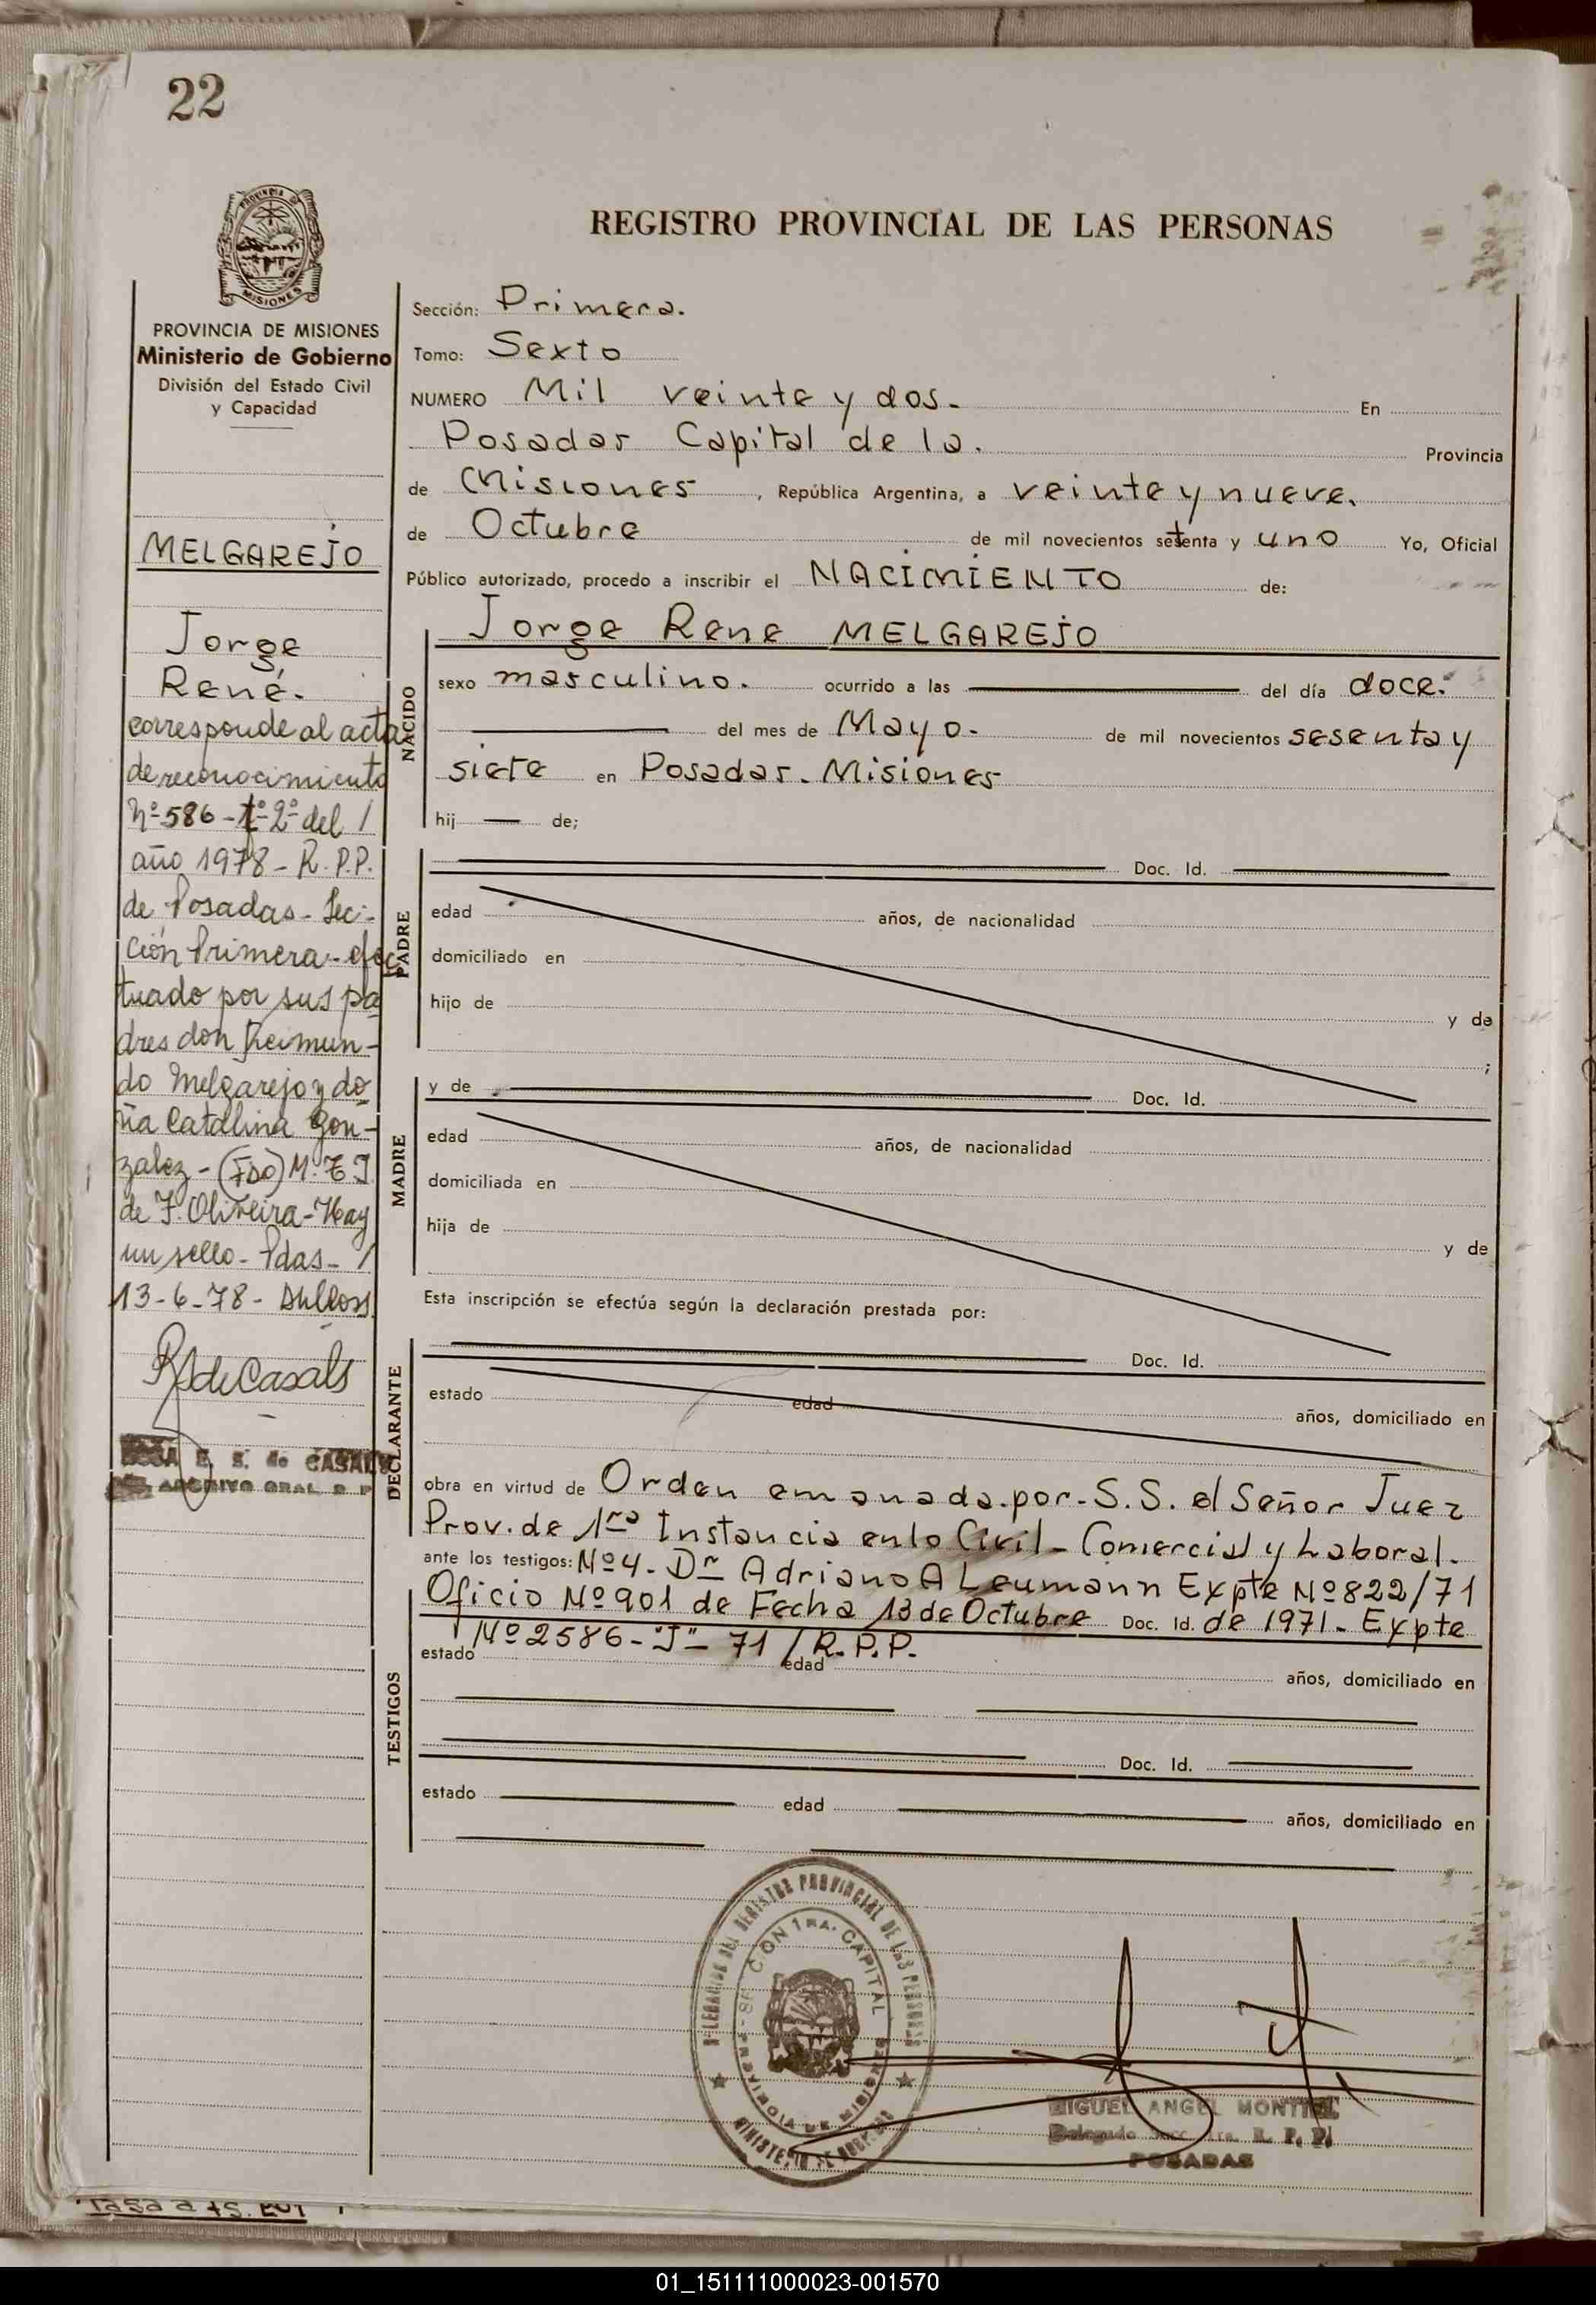 22
PROVINCIA
MISIONES
REGISTRO PROVINCIAL DE LAS PERSONAS
PROVINCIA DE MISIONES
Ministerio de Gobierno
División del Estado Civil
y Capacidad
MELGAREJO
Jorge
René.
corresponde al acta
de reconocimiento
Nº 586 - tº 2º del /
año 1978 - R.P.P.
de Posadas - Sec-
ción Primera - efec
tuado por sus pa
dres don Reimun-
do Melgarejo y do
ña Catalina Gon-
zalez - (FDO) M. E J
de F. Oliveira - Hay
un sello - Pdas - /
13-6-78 -
RSdeCasals
ROSA E. S. de CASALS
ARCHIVO GRAL. R. P.
Sección: Primera.
Tomo: Sexto
NUMERO Mil veinte y dos - En
Posadas Capital de la. Provincia
de Misiones, República Argentina, a veinte y nueve.
de Octubre de mil novecientos setenta y uno Yo, Oficial
Público autorizado, procedo a inscribir el NACIMIENTO de:
NACIDO
Jorge Rene MELGAREJO
sexo masculino. ocurrido a las del día doce.
del mes de Mayo. de mil novecientos sesenta y
siete en Posadas. Misiones
hij de;
PADRE
Doc. Id.
edad años, de nacionalidad
domiciliado en
hijo de y de
;
MADRE
y de Doc. Id.
edad años, de nacionalidad
domiciliada en
hija de y de
Esta inscripción se efectúa según la declaración prestada por:
DECLARANTE
Doc. Id.
estado edad años, domiciliado en
obra en virtud de Orden emanada por - S.S. el Señor Juez
Prov. de 1ra Instancia en lo Civil - Comercial y Laboral -
ante los testigos: Nº 4 - Dr Adriano A Leumann Expte Nº 822/71
Oficio Nº 901 de Fecha 13 de Octubre Doc. Id. de 1971 - Expte
Nº 2586 - "J" - 71 / R.P.P.
TESTIGOS
estado edad años, domiciliado en
Doc. Id.
estado edad años, domiciliado en
DELEGACION DEL REGISTRO PROVINCIAL DE LAS PERSONAS
SECCION 1RA. CAPITAL
PROVINCIA DE MISIONES
MINISTERIO DE GOBIERNO
MIGUEL ANGEL MONTIEL
Delegado Secc. 1ra. R. P. P.
POSADAS
01_151111000023-001570